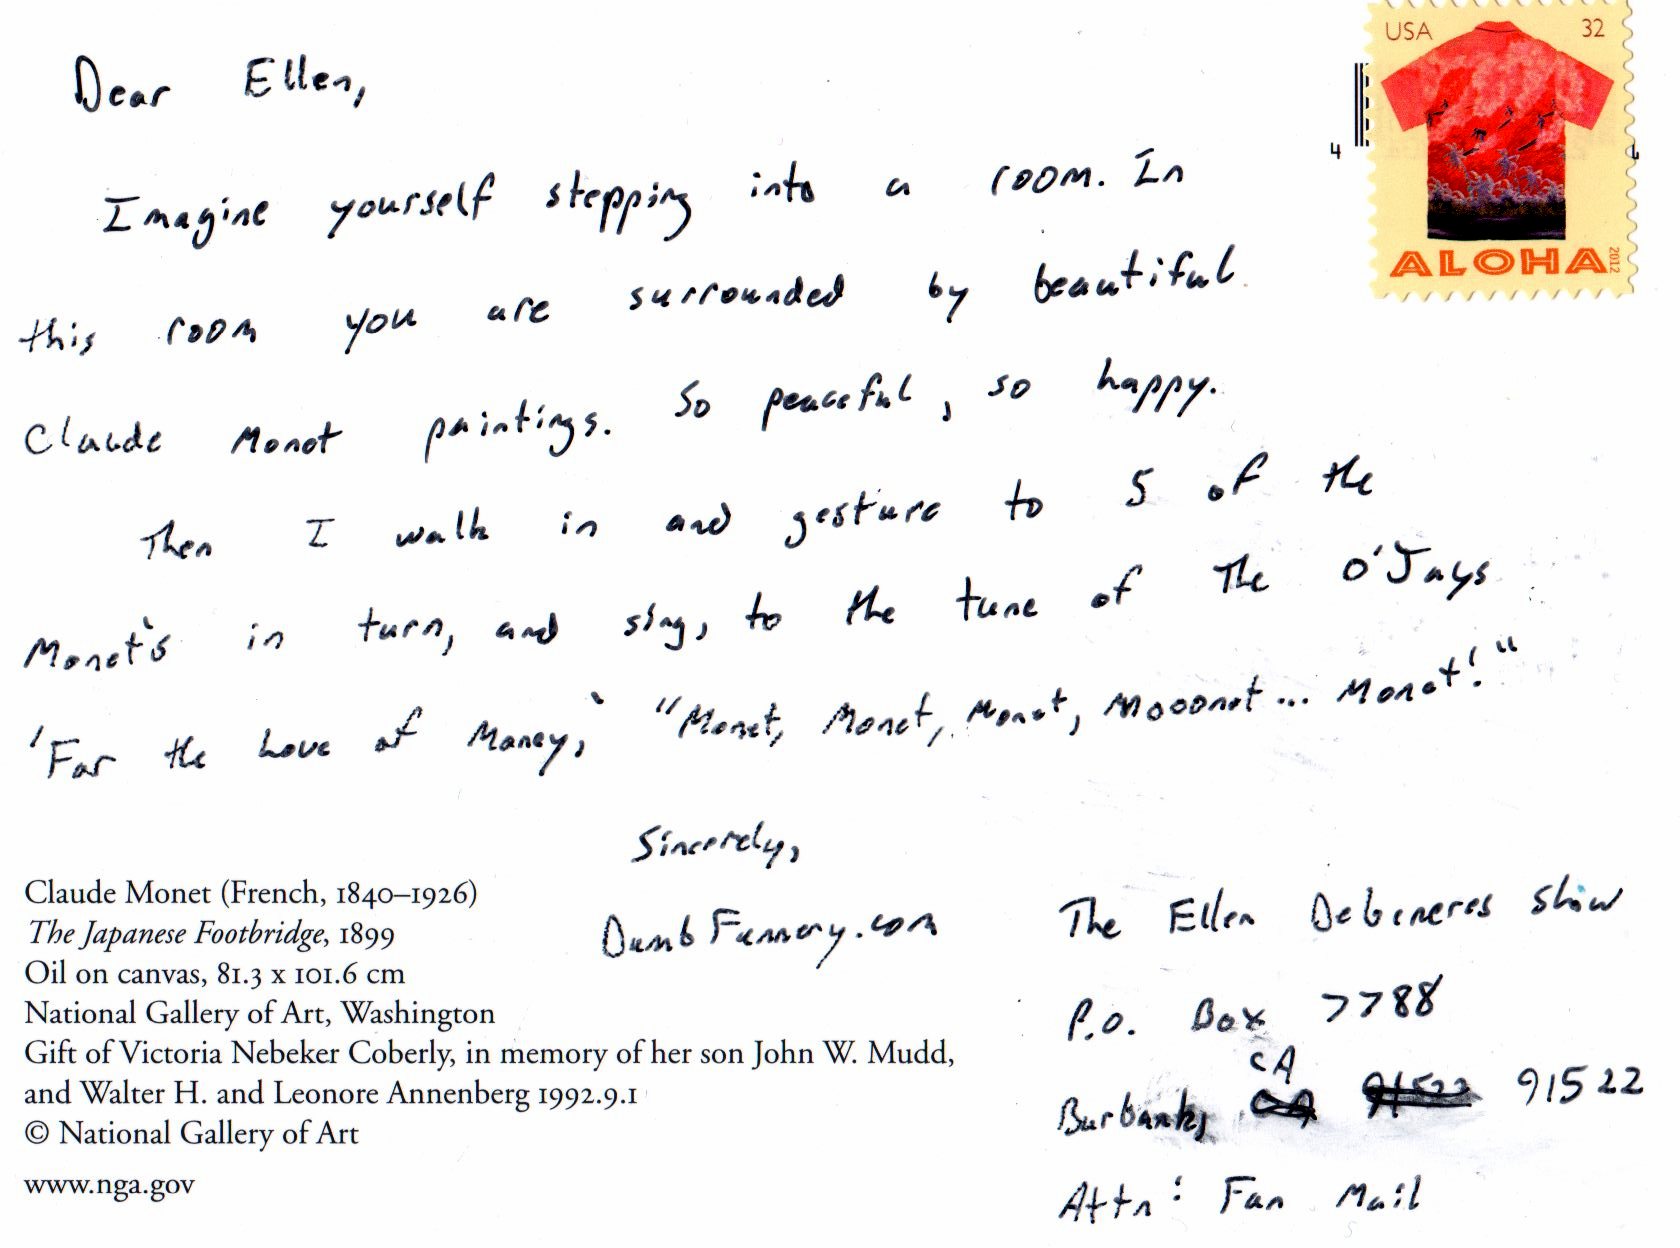 Dear Ellen,
USA 32
ALOHA
2012
4
Imagine yourself stepping into a room. In
this room you are surrounded by beautiful
Claude Monet paintings. So peaceful, so happy.
Then I walk in and gesture to 5 of the
Monet's in turn, and sing, to the tune of The O'Jays
'For the Love of Money,' "Monet, Monet, Monet, Mooonet... Monet!"
Sincerely,
DumbFunnery.com
Claude Monet (French, 1840–1926)
The Japanese Footbridge, 1899
Oil on canvas, 81.3 x 101.6 cm
National Gallery of Art, Washington
Gift of Victoria Nebeker Coberly, in memory of her son John W. Mudd,
and Walter H. and Leonore Annenberg 1992.9.1
© National Gallery of Art
www.nga.gov
The Ellen DeGeneres Show
P.O. Box 7788
Burbank, CA 91522
Attn: Fan Mail